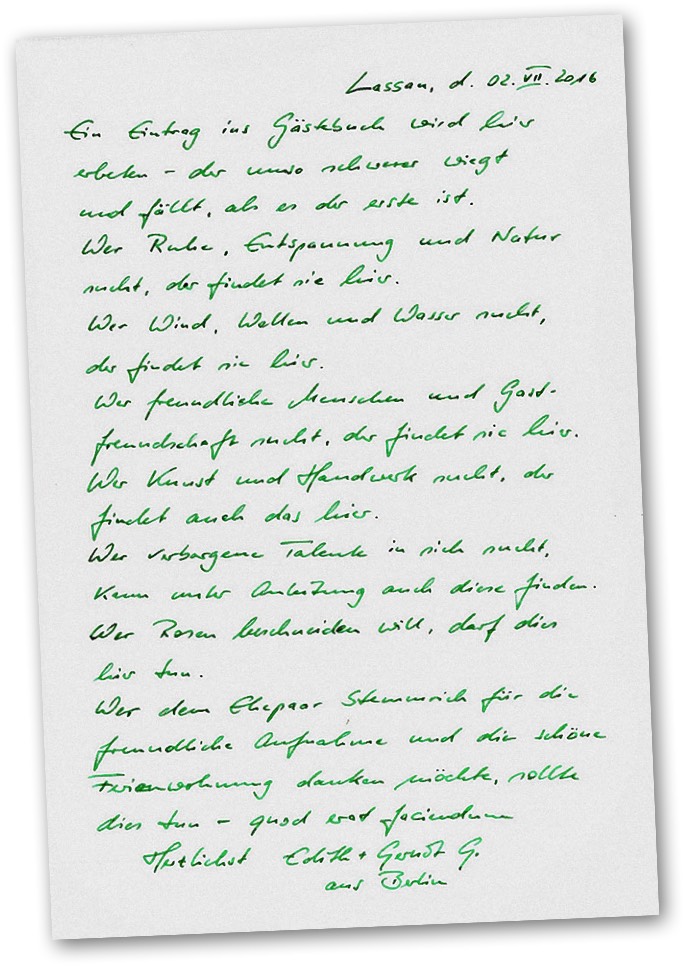 Lassan, d. 02. VII. 2016
Ein Eintrag ins Gästebuch wird hier
erbeten – der umso schwerer wiegt
und fällt, als es der erste ist.
Wer Ruhe, Entspannung und Natur
sucht, der findet sie hier.
Wer Wind, Wellen und Wasser sucht,
der findet sie hier.
Wer freundliche Menschen und Gast-
freundschaft sucht, der findet sie hier.
Wer Kunst und Handwerk sucht, der
findet auch das hier.
Wer verborgene Talente in sich sucht,
kann unter Anleitung auch diese finden.
Wer Rosen beschneiden will, darf dies
hier tun.
Wer dem Ehepaar Stemmrich für die
freundliche Aufnahme und die schöne
Ferienwohnung danken möchte, sollte
dies tun – quod erat faciendum
Herzlichst Edith + Gernot G.
aus Berlin